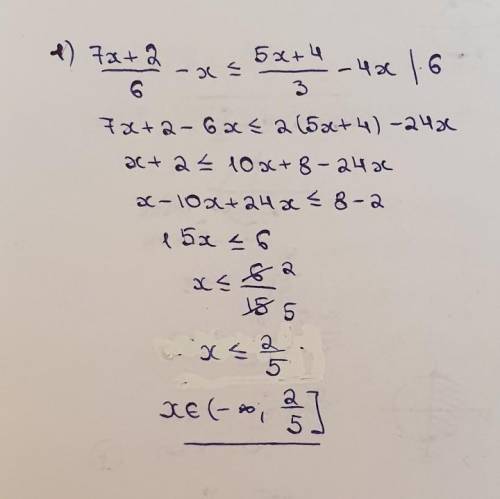 1) (7x+2)/6 - x ≤ (5x+4)/3 - 4x |·6
7x+2-6x ≤ 2(5x+4)-24x
x+2 ≤ 10x+8-24x
x-10x+24x ≤ 8-2
15x ≤ 6
x ≤ 6/15 2/5
x ≤ 2/5
x∈(-∞, 2/5]